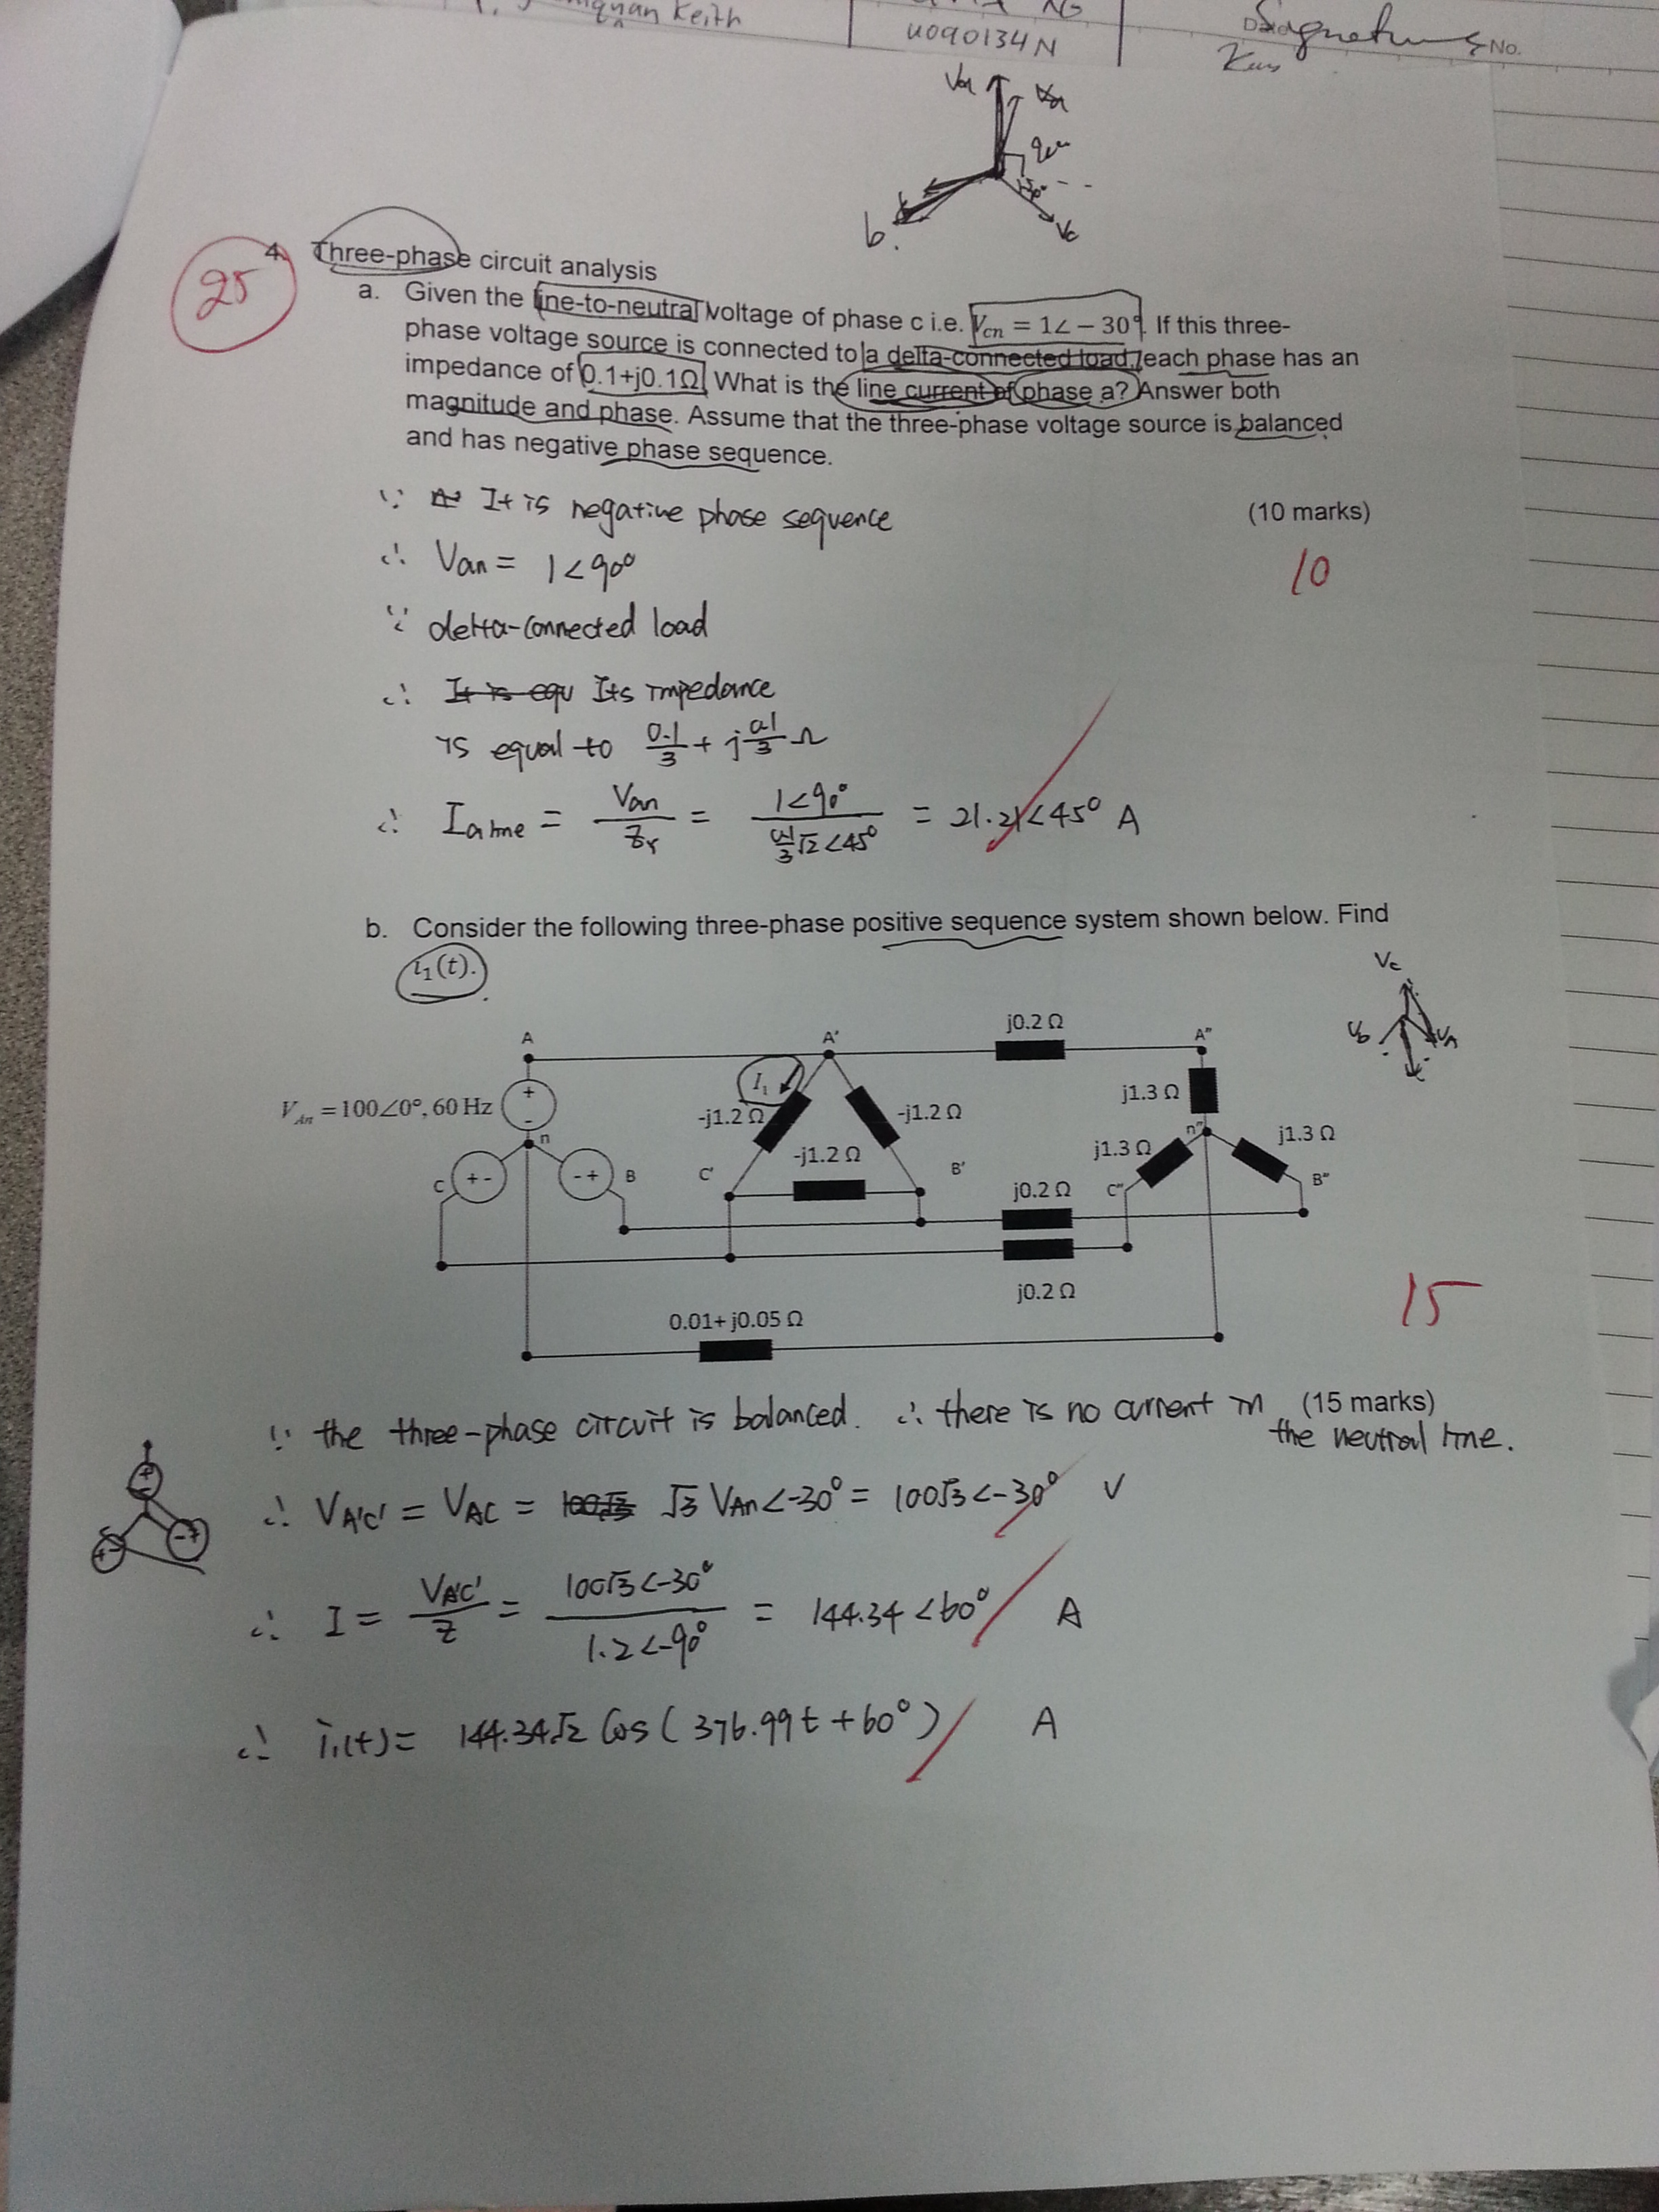 Keith
U090134N
Signature
No.
Van
90°
30°
b.
Vc
25
4. Three-phase circuit analysis
a. Given the line-to-neutral voltage of phase c i.e. Vcn = 1∠ − 30°. If this three-
phase voltage source is connected to a delta-connected load, each phase has an
impedance of 0.1+j0.1Ω. What is the line current of phase a? Answer both
magnitude and phase. Assume that the three-phase voltage source is balanced
and has negative phase sequence.
∵ It is negative phase sequence
(10 marks)
∴ Van = 1<90°
10
∵ delta-connected load
∴ It is equ Its impedance
is equal to 0.1/3 + j 0.1/3 Ω
∴ Ia line = Van/ZY = 1<90° / 0.1/3 √2 <45° = 21.21<45° A
b. Consider the following three-phase positive sequence system shown below. Find
i₁(t).
Vc
Vb
VA
j0.2 Ω
A
A'
A"
I₁
j1.3 Ω
VAn = 100∠0°, 60 Hz
+
-
-j1.2 Ω
-j1.2 Ω
n
n"
j1.3 Ω
j1.3 Ω
-j1.2 Ω
C
+ -
- +
B
C'
B'
j0.2 Ω
C"
B"
j0.2 Ω
0.01+ j0.05 Ω
15
∵ the three-phase circuit is balanced. ∴ there is no current in
(15 marks)
the neutral line.
∴ VA'C' = VAC = 100√3 √3 VAn <-30° = 100√3 <-30° V
∴ I = VA'C'/Z = 100√3 <-30° / 1.2 <-90° = 144.34 <60° A
∴ i₁(t) = 144.34√2 Cos ( 376.99t + 60° ) A